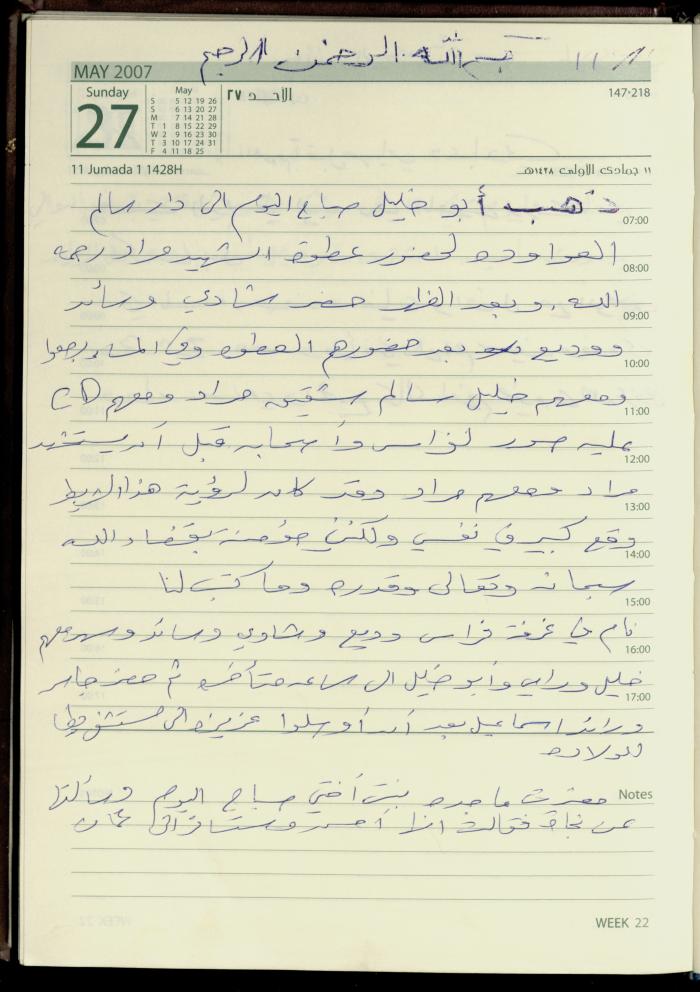 بسم الله الرحمن الرحيم
MAY 2007
Sunday
27
May
S 5 12 19 26
S 6 13 20 27
M 7 14 21 28
T 1 8 15 22 29
W 2 9 16 23 30
T 3 10 17 24 31
F 4 11 18 25
الأحد ٢٧
147-218
11 Jumada 1 1428H
١١ جمادى الأولى ١٤٢٨هـ
ذهب أبو خليل صباح اليوم الى دار سالم
07:00
العواوده لحضور عطوة الشهيد مراد رحمه
08:00
الله. وبعد الغداء حضر شادي وسائد
09:00
ووديع بعد حضورهم العطوه وفي المساء رجعوا
10:00
ومعهم خليل سالم شقيق مراد ومعهم CD
11:00
عليه صور لفراس وأصحابه قبل أن يستشهد
12:00
مراد ومعهم مراد وقد كان لرؤية هذا الشريط
13:00
وقع كبير في نفسي ولكنني مؤمنة بقضاء الله
14:00
سبحانه وتعالى وقدره وما كتب لنا
15:00
نام في غرفة فراس وديع وشادي وسائد وسهر معهم
16:00
خليل ورامي وأبو خليل الى ساعه متأخره ثم حضر جابر
17:00
ورائد اسماعيل بعد أن أوصلوا عزيزه الى مستشفى
للولاده
Notes
حضرت ماجده بنت أختي صباح اليوم وسألتها
عن نجاة فقالت انها أمس سافرت الى عمان
WEEK 22